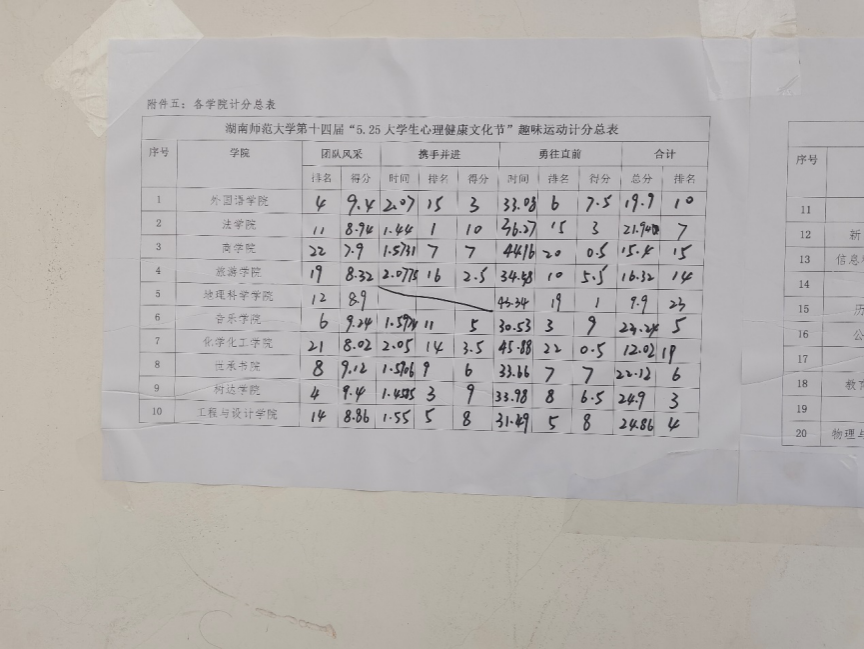 附件五：各学院计分总表
湖南师范大学第十四届“5.25大学生心理健康文化节”趣味运动计分总表
序号 学院 团队风采 携手并进 勇往直前 合计
排名 得分 时间 排名 得分 时间 排名 得分 总分 排名
1 外国语学院 4 9.4 2.07 15 3 33.03 6 7.5 19.9 10
2 法学院 11 8.94 1.44 1 10 36.27 15 3 7
3 商学院 22 7.9 1.5731 7 7 4416 20 0.5 15.4 15
4 旅游学院 19 8.32 16 2.5 10 5.5 16.32 14
5 地理科学学院 12 8.9 43.34 19 1 9.9 23
6 音乐学院 6 9.24 11 5 30.53 3 9 23.24 5
7 化学化工学院 21 8.02 2.05 14 3.5 45.88 22 0.5 12.02 19
8 世承书院 8 9.12 9 6 33.66 7 7 22.12 6
9 树达学院 4 9.4 3 9 33.98 8 6.5 24.9 3
10 工程与设计学院 14 8.86 1.55 5 8 31.49 5 8 24.86 4
序号
11
12 新
13 信息
14
15 历
16 公
17
18 教育
19
20 物理与